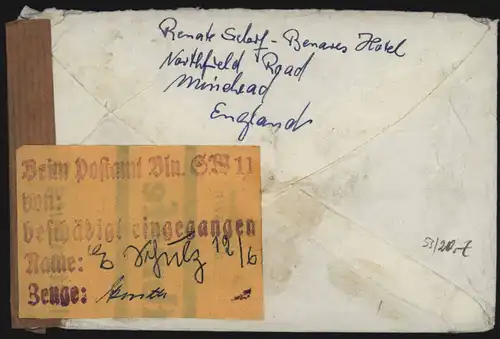 Renate Scharf - Benares Hotel
Northfield Road
Minehead
England
Beim Postamt Bln. SW 11
voll
beschädigt eingegangen
Name: Schulz 12/6
Zeuge: